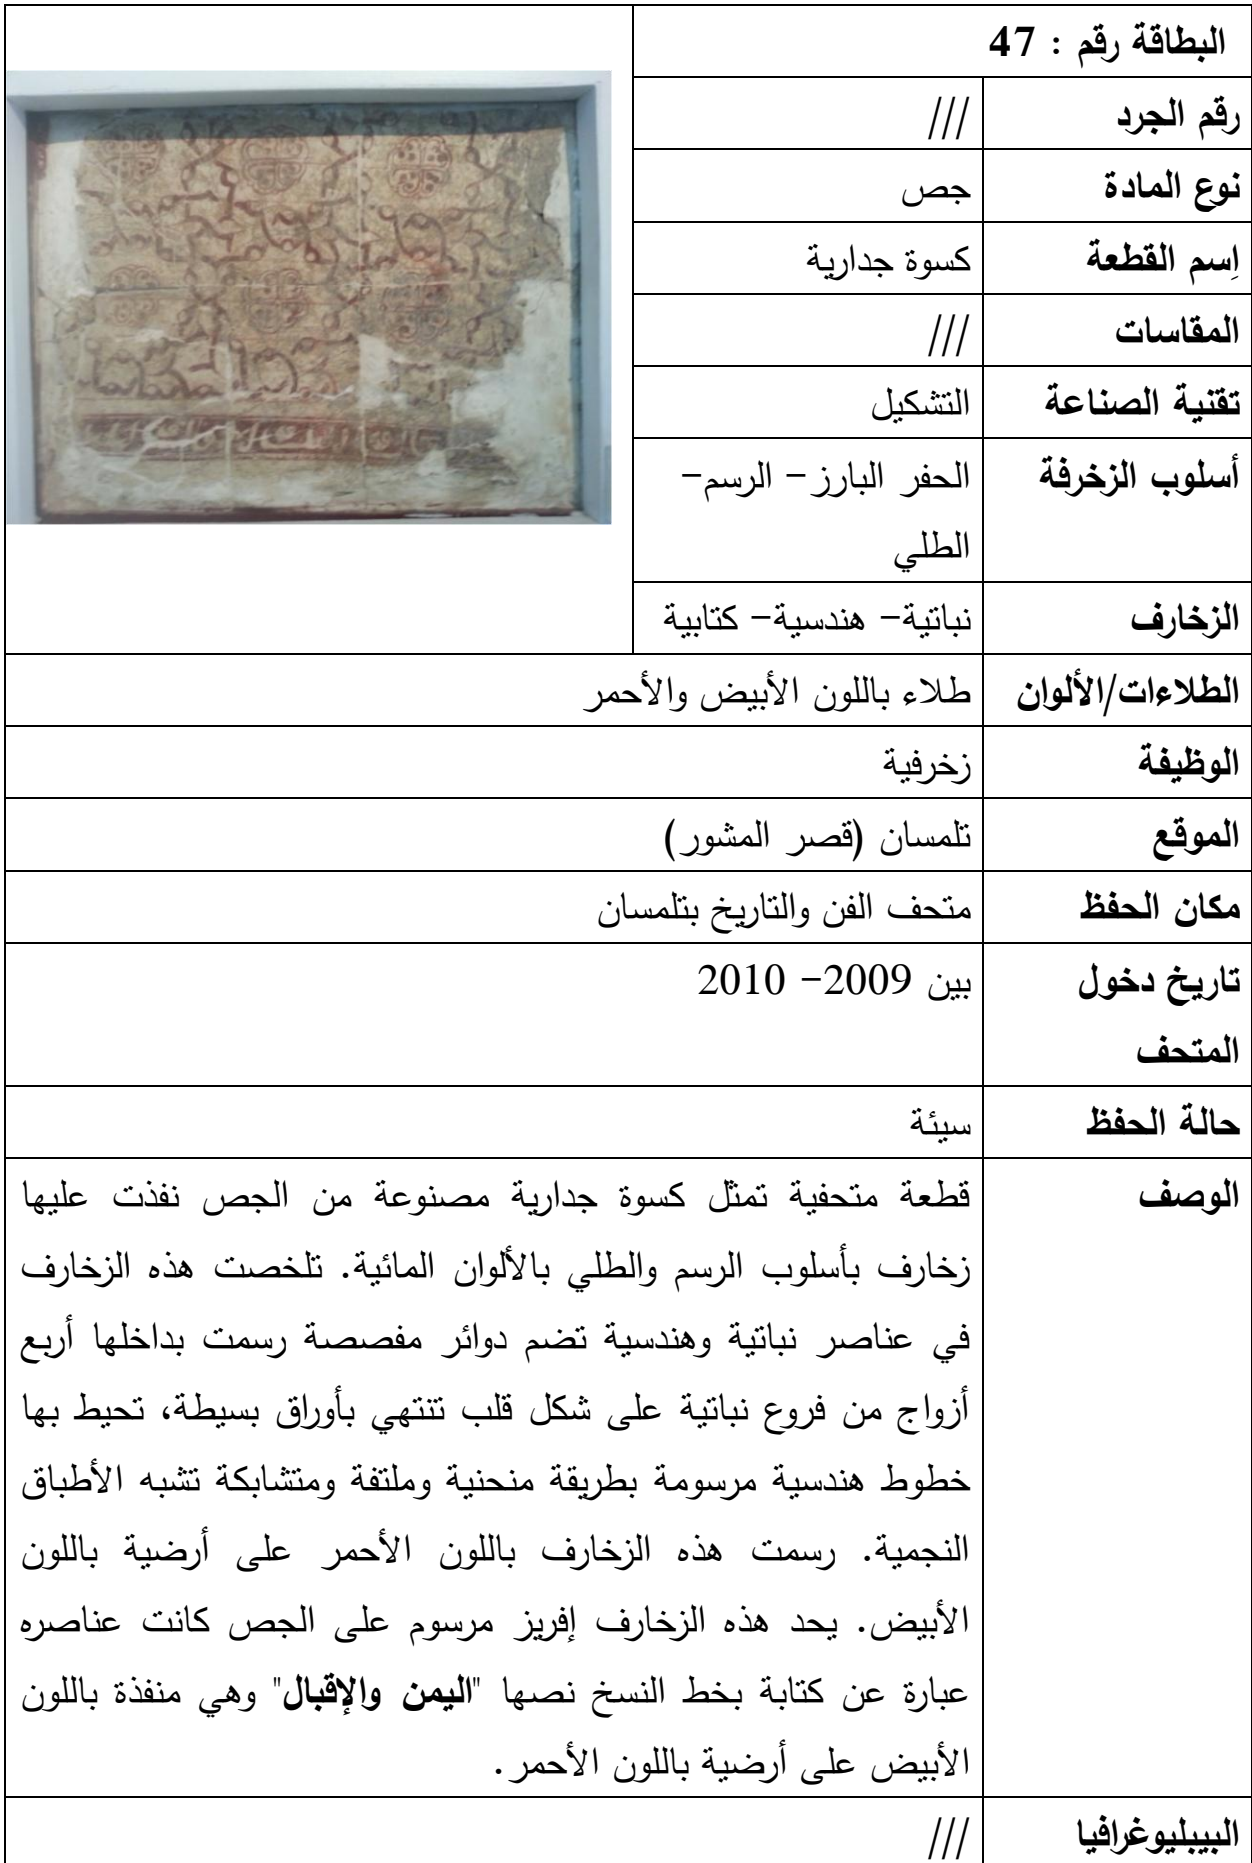 البطاقة رقم : 47
رقم الجرد ///
نوع المادة جص
اِسم القطعة كسوة جدارية
المقاسات ///
تقنية الصناعة التشكيل
أسلوب الزخرفة الحفر البارز– الرسم–
الطلي
الزخارف نباتية– هندسية– كتابية
الطلاءات/الألوان طلاء باللون الأبيض والأحمر
الوظيفة زخرفية
الموقع تلمسان (قصر المشور)
مكان الحفظ متحف الفن والتاريخ بتلمسان
تاريخ دخول بين 2009– 2010
المتحف
حالة الحفظ سيئة
الوصف قطعة متحفية تمثل كسوة جدارية مصنوعة من الجص نفذت عليها
زخارف بأسلوب الرسم والطلي بالألوان المائية. تلخصت هذه الزخارف
في عناصر نباتية وهندسية تضم دوائر مفصصة رسمت بداخلها أربع
أزواج من فروع نباتية على شكل قلب تنتهي بأوراق بسيطة، تحيط بها
خطوط هندسية مرسومة بطريقة منحنية وملتفة ومتشابكة تشبه الأطباق
النجمية. رسمت هذه الزخارف باللون الأحمر على أرضية باللون
الأبيض. يحد هذه الزخارف إفريز مرسوم على الجص كانت عناصره
عبارة عن كتابة بخط النسخ نصها "اليمن والإقبال" وهي منفذة باللون
الأبيض على أرضية باللون الأحمر.
البيبليوغرافيا ///